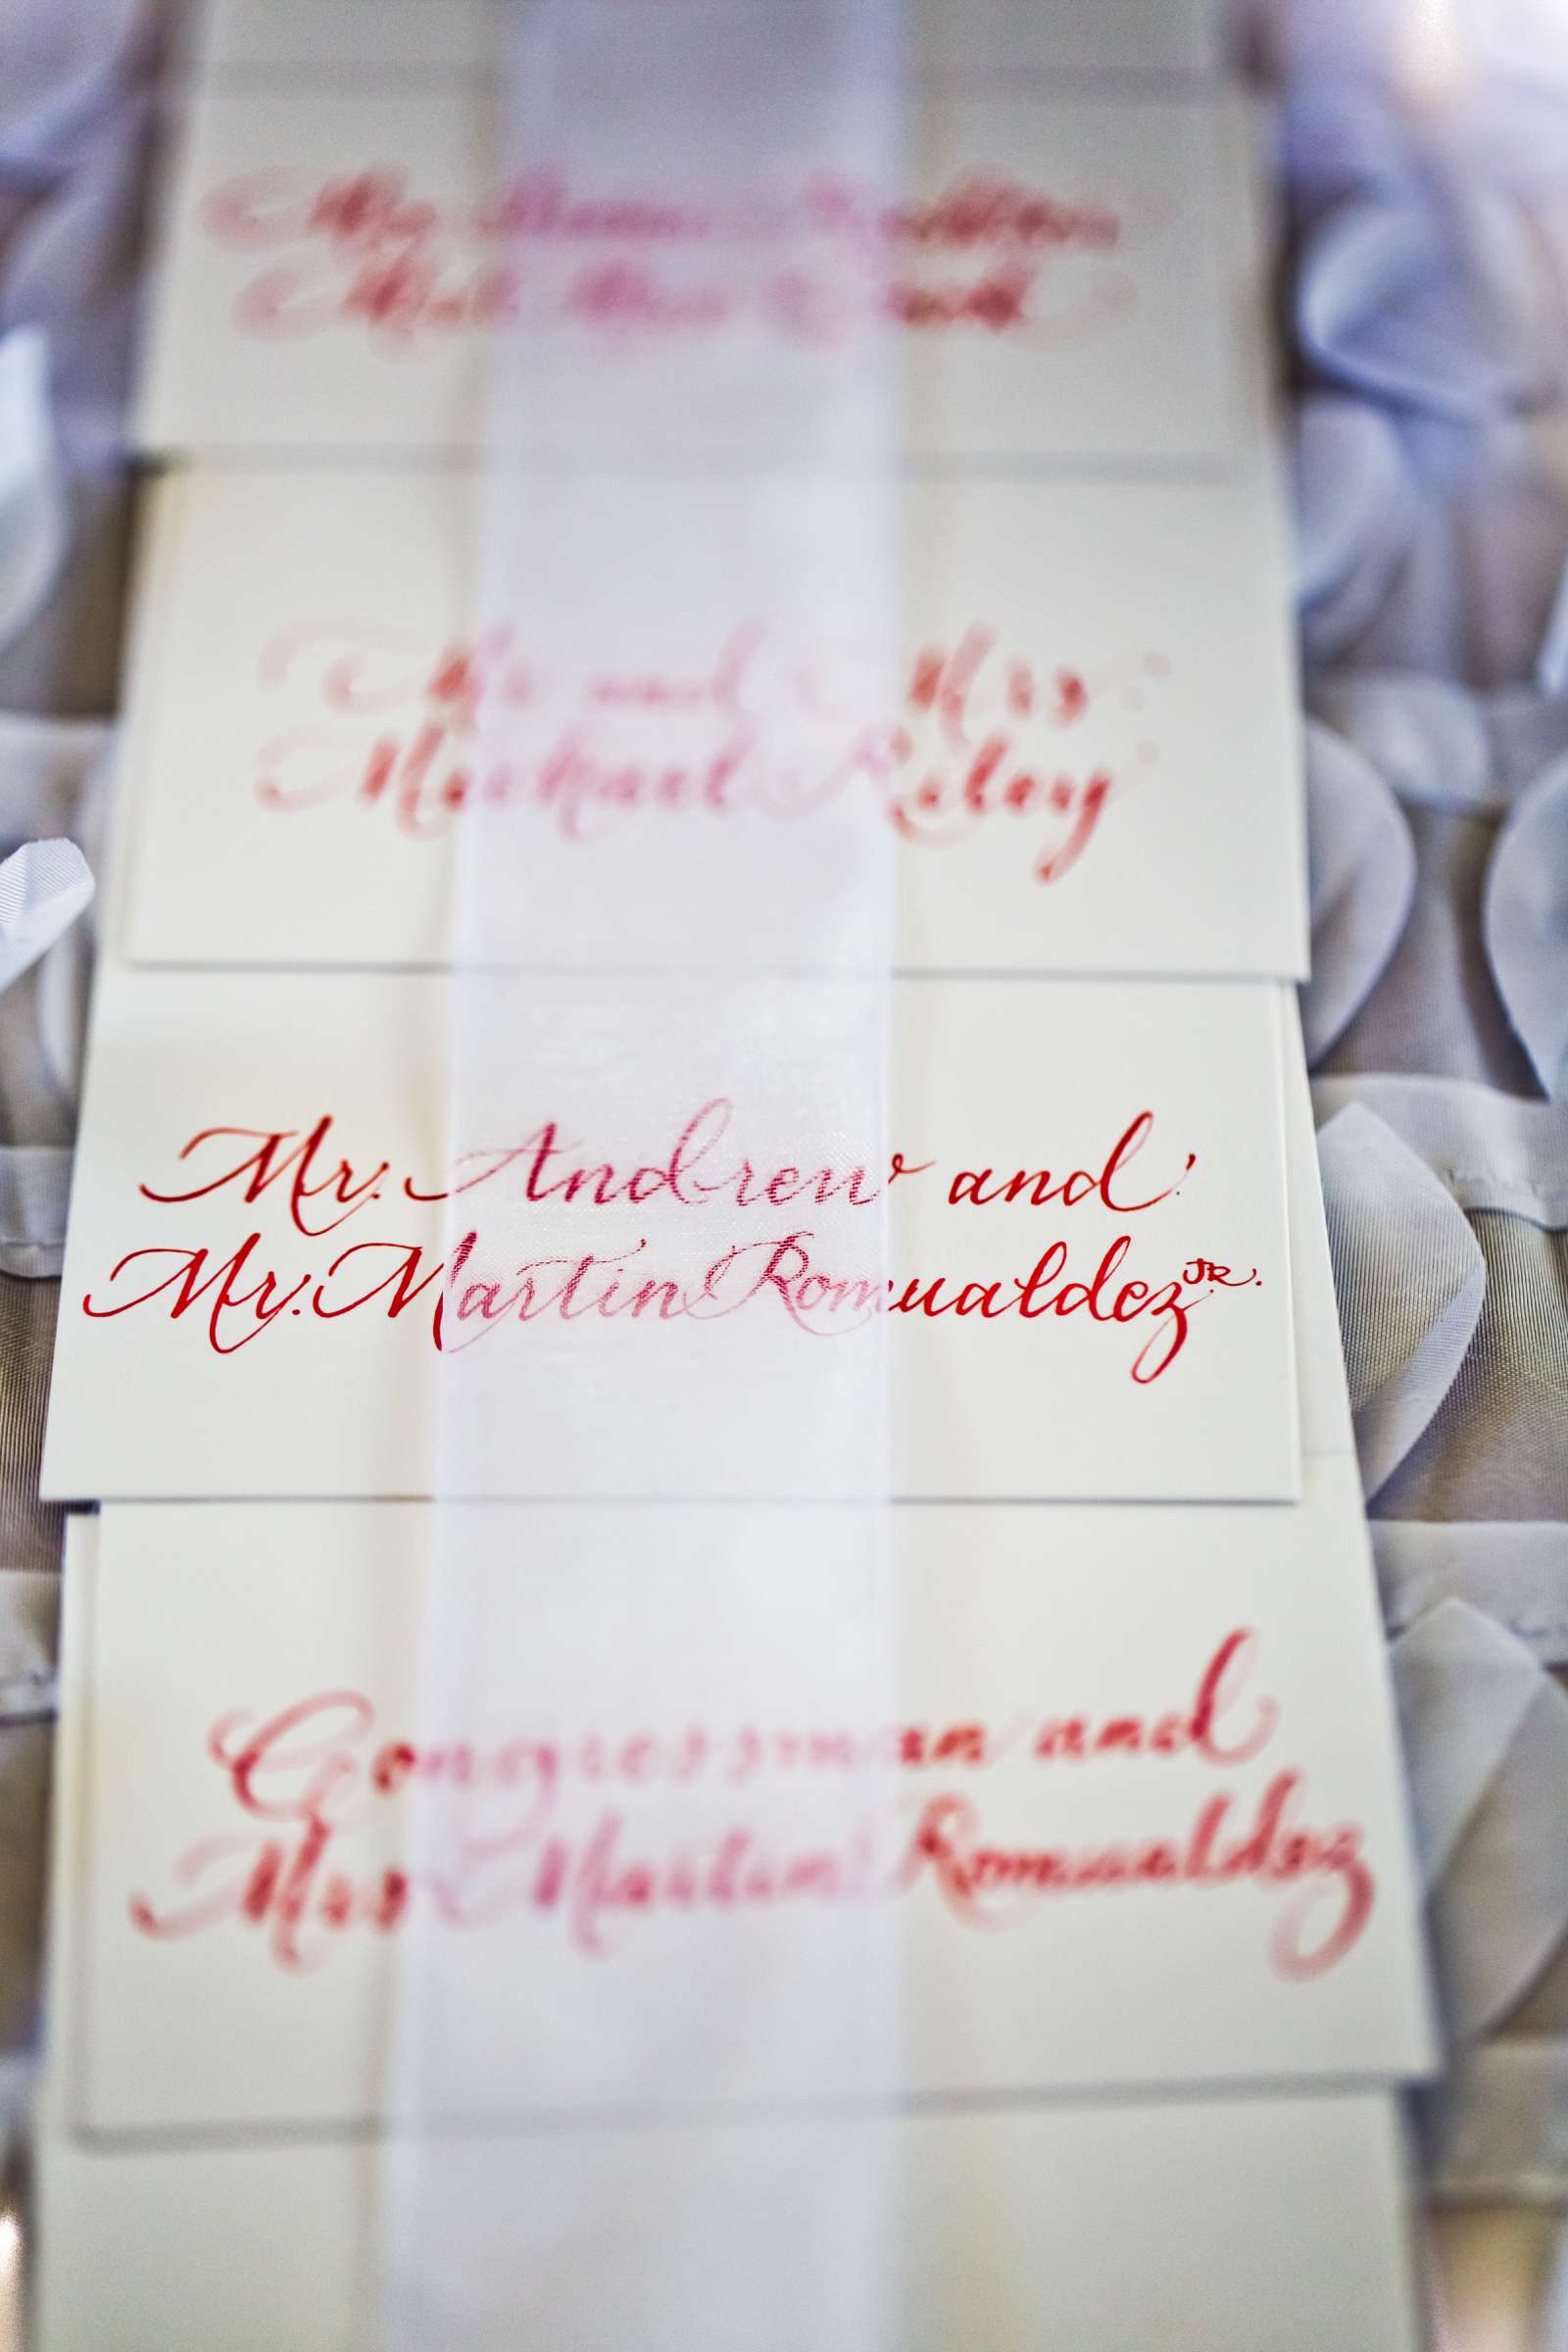 Mr and Mrs
Michael Riley
Mr. Andrew and
Mr. Martin Romualdez JR.
Congressman and
Mrs Martin Romualdez